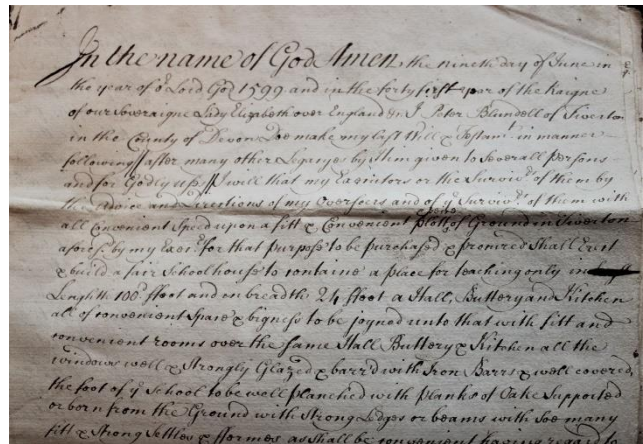 In the name of God Amen, the nineth day of June in
the year of oʳ Lord God 1599 and in the forty first year of the Raigne
of our Soveraigne Lady Elizabeth over England &c I Peter Blundell of Tiverton
in the County of Devon Doe make my last Will & Testamᵗ in manner
following// after many other Legasyes by Him given to Severall persons
and for Godly uses// I will that my Executors or the Survivʳˢ of them by
the Advice and Directions of my Overseers and of yᵉ Survivʳˢ of them with
all Convenient Speed upon a fitt & Convenient plott of Ground in Tiverton
aforesᵈ by my Execʳˢ for that purpose to be purchased & procured Shall Erect
& build a fair Schoolhouse to containe a place for teaching only in
Lenghth 100ᵈ ffoot and in breadth 24 ffoot a Hall, Buttery and Kitchen
all of convenient Space & bigness to be joyned unto that with fitt and
convenient rooms over the same Hall Buttery & Kitchen all the
windows well & Strongly Glazed & barr'd with Iron Barrs & well covered
the foot of yᵉ School to be well planched with planks of Oake Supported
or born from the Ground with Strong Ledges or beams with Soe many
fitt & strong Settles & fformes as shall be convenient having regard to